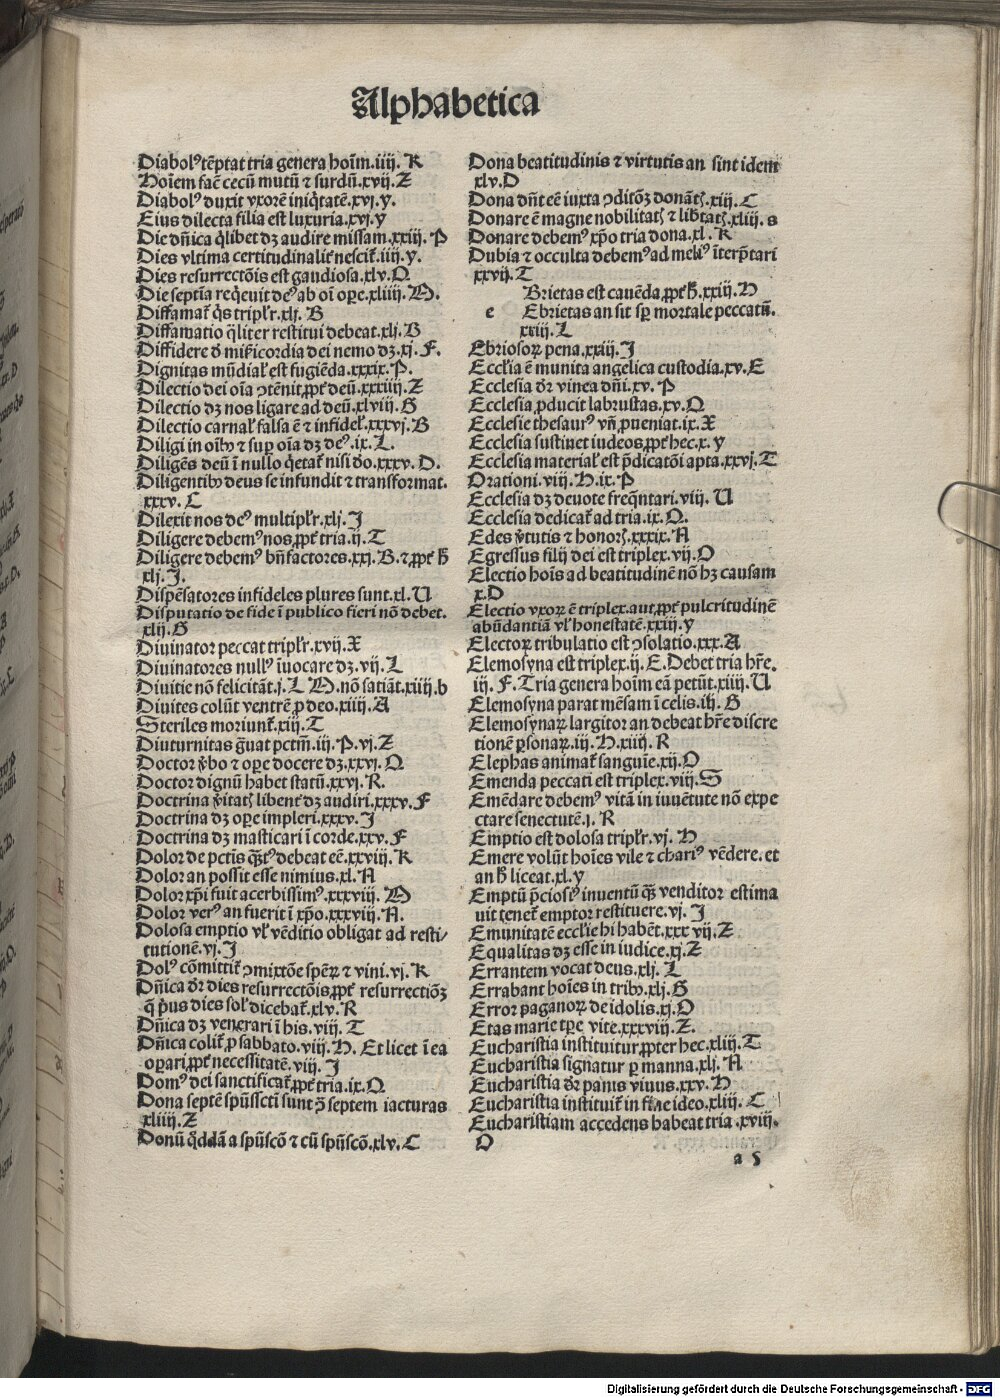 Alphabetica
Diabolꝰ tēptat tria genera hoīm.iiij. K
Hoīem facē cecū mutū ⁊ surdū.xvij. Z
Diabolꝰ duxit vxorē iniq̄tatē.xvj.y.
Eius dilecta filia est luxuria.xvj.y
Die dn̄ica q̄libet dꝫ audire missam.xxiij. P
Dies vltima certitudinalit̄ nescit̄.iiij.y.
Dies resurrectōis est gaudiosa.xlv.Q
Die septīa req̄euit deꝰ ab oī oꝑe.xliiij. M.
Diffamat̄ q̄s triplr̄.xlj. B
Diffamatio q̄liter restitui debeat.xlj. B
Diffidere d̄ mīsericordia dei nemo dꝫ.xj. F.
Dignitas mūdial̄ est fugiēda.xxxix.P.
Dilectio dei oīa ↄtēnit ꝓpt̄ deū.xxxiiij.Z
Dilectio dꝫ nos ligare ad deū.xlviij. G
Dilectio carnal̄ falsa ē ⁊ infidel̄.xxxvj. B
Diligi in oībꝰ ⁊ suꝑ oīa dꝫ deꝰ.ix. L.
Diligēs deū ī nullo q̄etat̄ nisi deo.xxxv. D.
Diligentibꝰ deus se infundit ⁊ transformat.
xxxv. C
Dilexit nos deꝰ multiplr̄.xlj. J
Diligere debemꝰ nos ꝓpt̄ tria.ij. T
Diligere debemꝰ bn̄factores.xxj. B. ⁊ ꝓpt̄ h̄
xlj. J.
Dispēsatores infideles plures sunt.xl. U
Disputatio de fide ī publico fieri nō debet.
xlij. G
Diuinator peccat triplr̄.xvij. X
Diuinatores nullꝰ īuocare dꝫ.vij. L
Diuitie nō felicitāt.j. L M. nō satiāt.xiiij.b
Diuites colūt ventrē ꝓ deo.xiiij. A
Steriles moriunt̄.xij. T
Diuturnitas ḡuat pctm̄.iij. P. vj. Z
Doctor v̄bo ⁊ oꝑe docere dꝫ.xxvj. Q
Doctor dignū habet statū.xxvj. R.
Doctrina v̄itatꝭ libent̄ dꝫ audiri.xxxv. F
Doctrina dꝫ oꝑe impleri.xxxv. J
Doctrina dꝫ masticari ī corde.xxv. F
Dolor de pctis q̄ntꝰ debeat eē.xxviij. K
Dolor an possit esse nimius.xl. N
Dolor xp̄i fuit acerbissimꝰ.xxxviij. M
Dolor verꝰ an fuerit ī xp̄o.xxxviij. N.
Dolosa emptio vl̄ vēditio obligat ad resti⸗
tutionē.vj. J
Dolꝰ cōmittit̄ ↄmixtōe speꝝ ⁊ vini.vj. K
Dn̄ica dr̄ dies resurrectōis ꝓpt̄ resurrectiōꝫ
q̄ p̄us dies solꝭ dicebat̄.xlv. R
Dn̄ica dꝫ venerari ī his.viij. T
Dn̄ica colit̄ ꝓ sabbato.viij. H. Et licet ī ea
oꝑari ꝓpt̄ necessitatē.viij. J
Domꝰ dei sanctificat̄ ꝓpt̄ tria.ix. Q
Dona septē spūsscti sunt ↄ̄ septem iacturas
xliiij. Z
Donū q̄ddā a spūscō ⁊ cū spūscō.xlv. C
Dona beatitudinis ⁊ virtutis an sint idem
xlv. D
Dona dn̄t eē iuxta ↄditōꝫ donātꝭ.xiij. C
Donare ē magne nobilitatꝭ ⁊ lib̄tatꝭ.xliij. s
Donare debemꝰ xp̄o tria dona.xl. K
Dubia ⁊ occulta debemꝰ ad meliꝰ īterp̄tari
xxvij. T
Brietas est cauēda ꝓpt̄ h̄.xxiij. H
e Ebrietas an sit sꝑ mortale peccatū.
xxiij. L
Ebriosoꝝ pena.xxiij. J
Eccl̄ia ē munita angelica custodia.xv. E
Ecclesia dr̄ vinea dn̄i.xv. P
Ecclesia ꝓducit labruscas.xv. Q
Ecclesie thesaurꝰ vn̄ ꝓueniat.ix. X
Ecclesia sustinet iudeos ꝓpt̄ hec.x. y
Ecclesia material̄ est p̄dicatōi apta.xxvj. T
Orationi.viij. H. ix. P
Ecclesia dꝫ deuote freq̄ntari.viij. U
Ecclesia dedicat̄ ad tria.ix. Q.
Edes v̄tutis ⁊ honorꝭ.xxxix. N
Egressus filij dei est triplex.vij. O
Electio hoīs ad beatitudinē nō hꝫ causam
x. D
Electio vxoꝝ ē triplex.aut ꝓpt̄ pulcritudinē
abūdantiā vl̄ honestatē.xxiij. y
Electoꝝ tribulatio est ↄsolatio.xxx. A
Elemosyna est triplex.ij. E. Debet tria hr̄e.
iij. F. Tria genera hoīm eā petūt.xiiij. U
Elemosyna parat mēsam ī celis.iiij. G
Elemosynaꝝ largitor an debeat hr̄e discre
tionē ꝑsonaꝝ.iij. H. xiiij. R
Elephas animat̄ sanguīe.xij. O
Emenda peccati est triplex.viij. S
Emēdare debemꝰ vitā in iuuētute nō expe
ctare senectutē.j. R
Emptio est dolosa triplr̄.vj. H
Emere volūt hoīes vile ⁊ chariꝰ vēdere. et
an h̄ liceat.xl. y
Emptū p̄ciosꝰ inuentū q̄ꝫ venditor estima
uit tenet̄ emptor restituere.vj. J
Emunitatē eccl̄ie hi habēt.xxx vij. Z
Equalitas dꝫ esse in iudice.xj. Z
Errantem vocat deus.xlj. L
Errabant hoīes in tribꝰ.xlj. G
Error paganoꝝ de idolis.xj. O
Etas marie tꝑe vite.xxxviij. Z.
Eucharistia instituitur ꝓpter hec.xliij. T
Eucharistia signatur ꝑ manna.xlj. N
Eucharistia dr̄ panis viuus.xxv. H
Eucharistia instituit̄ in fine ideo.xliij. C
Eucharistiam accedens habeat tria.xviij.
O
a 5
Digitalisierung gefördert durch die Deutsche Forschungsgemeinschaft - DFG